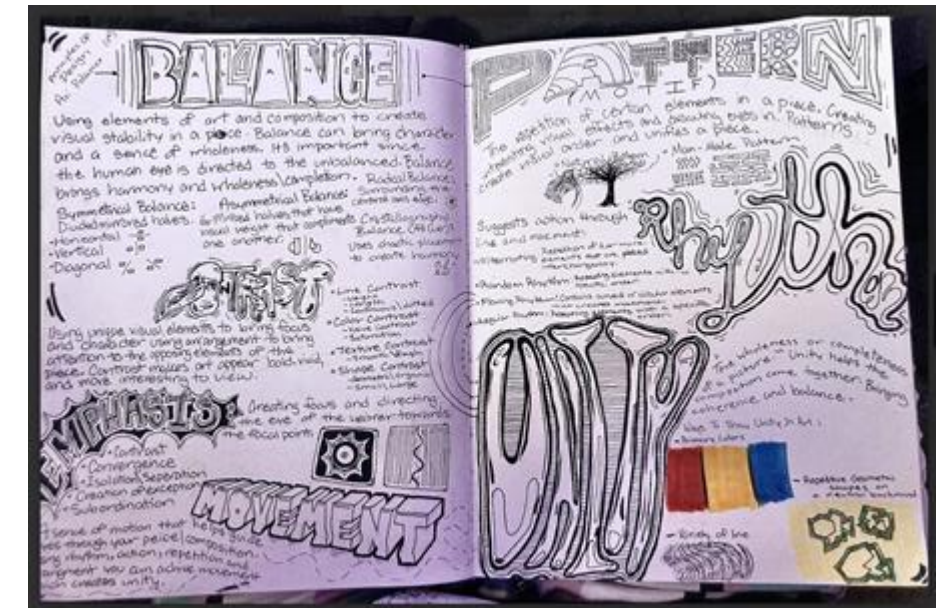 Principles of
Design
Art Balance
BALANCE
Using elements of art and composition to create
visual stability in a piece Balance can bring character
and a sense of wholeness. Its important since
the human eye is directed to the unbalanced. Balance
brings harmony and wholeness\completion.
Symmetrical Balance:
Divided mirrored halves.
-Horizontal
-Vertical
-Diagonal
Asymmetrical Balance:
halves that have
visual weight that
one another
Radial Balance:
Surrounding the
central axis
Crystallographic
Balance
Uses chaotic
to create harmony
CONTRAST
Using unique visual elements to bring focus
and character using arrangement to bring
attention to the opposing elements of the
piece. Contrast makes art appear bold, vivid,
and more interesting to view.
• Line Contrast
• Color Contrast
-Value contrast
-Saturation
• Texture Contrast
-Smooth, Rough
• Shape Contrast
-Small, Large
EMPHASIS:
Creating focus and directing
the eye of the viewer towards
the focal point
• Contrast
• Convergence
• Isolation, Seperation
• Creation of exception
• Subordination
MOVEMENT
sense of motion that helps guide
through your peice\composition.
rhythm, action, repetition and
you can achive movement
creates unity.
PATTERN
(MOTIF)
The repetition of certain elements in a piece. Creating
interesting visual effects and
create visual order and unifies a piece.
• Man-Made Pattern
Rhythm
Suggests action through
line and movement.
• Alternating
• Random Rhythm: Repeating elements with
• Flowing Rhythm:
• Regular Rhythm: Repeating elements with a specific
UNITY
The wholeness or completeness
of a picture. Unity helps the
composition come together. Bringing
coherence and balance.
Ways To Show Unity In Art:
• Primary Colors
- Repetitive Geometric
shapes on
a neutral background
- Variety of line